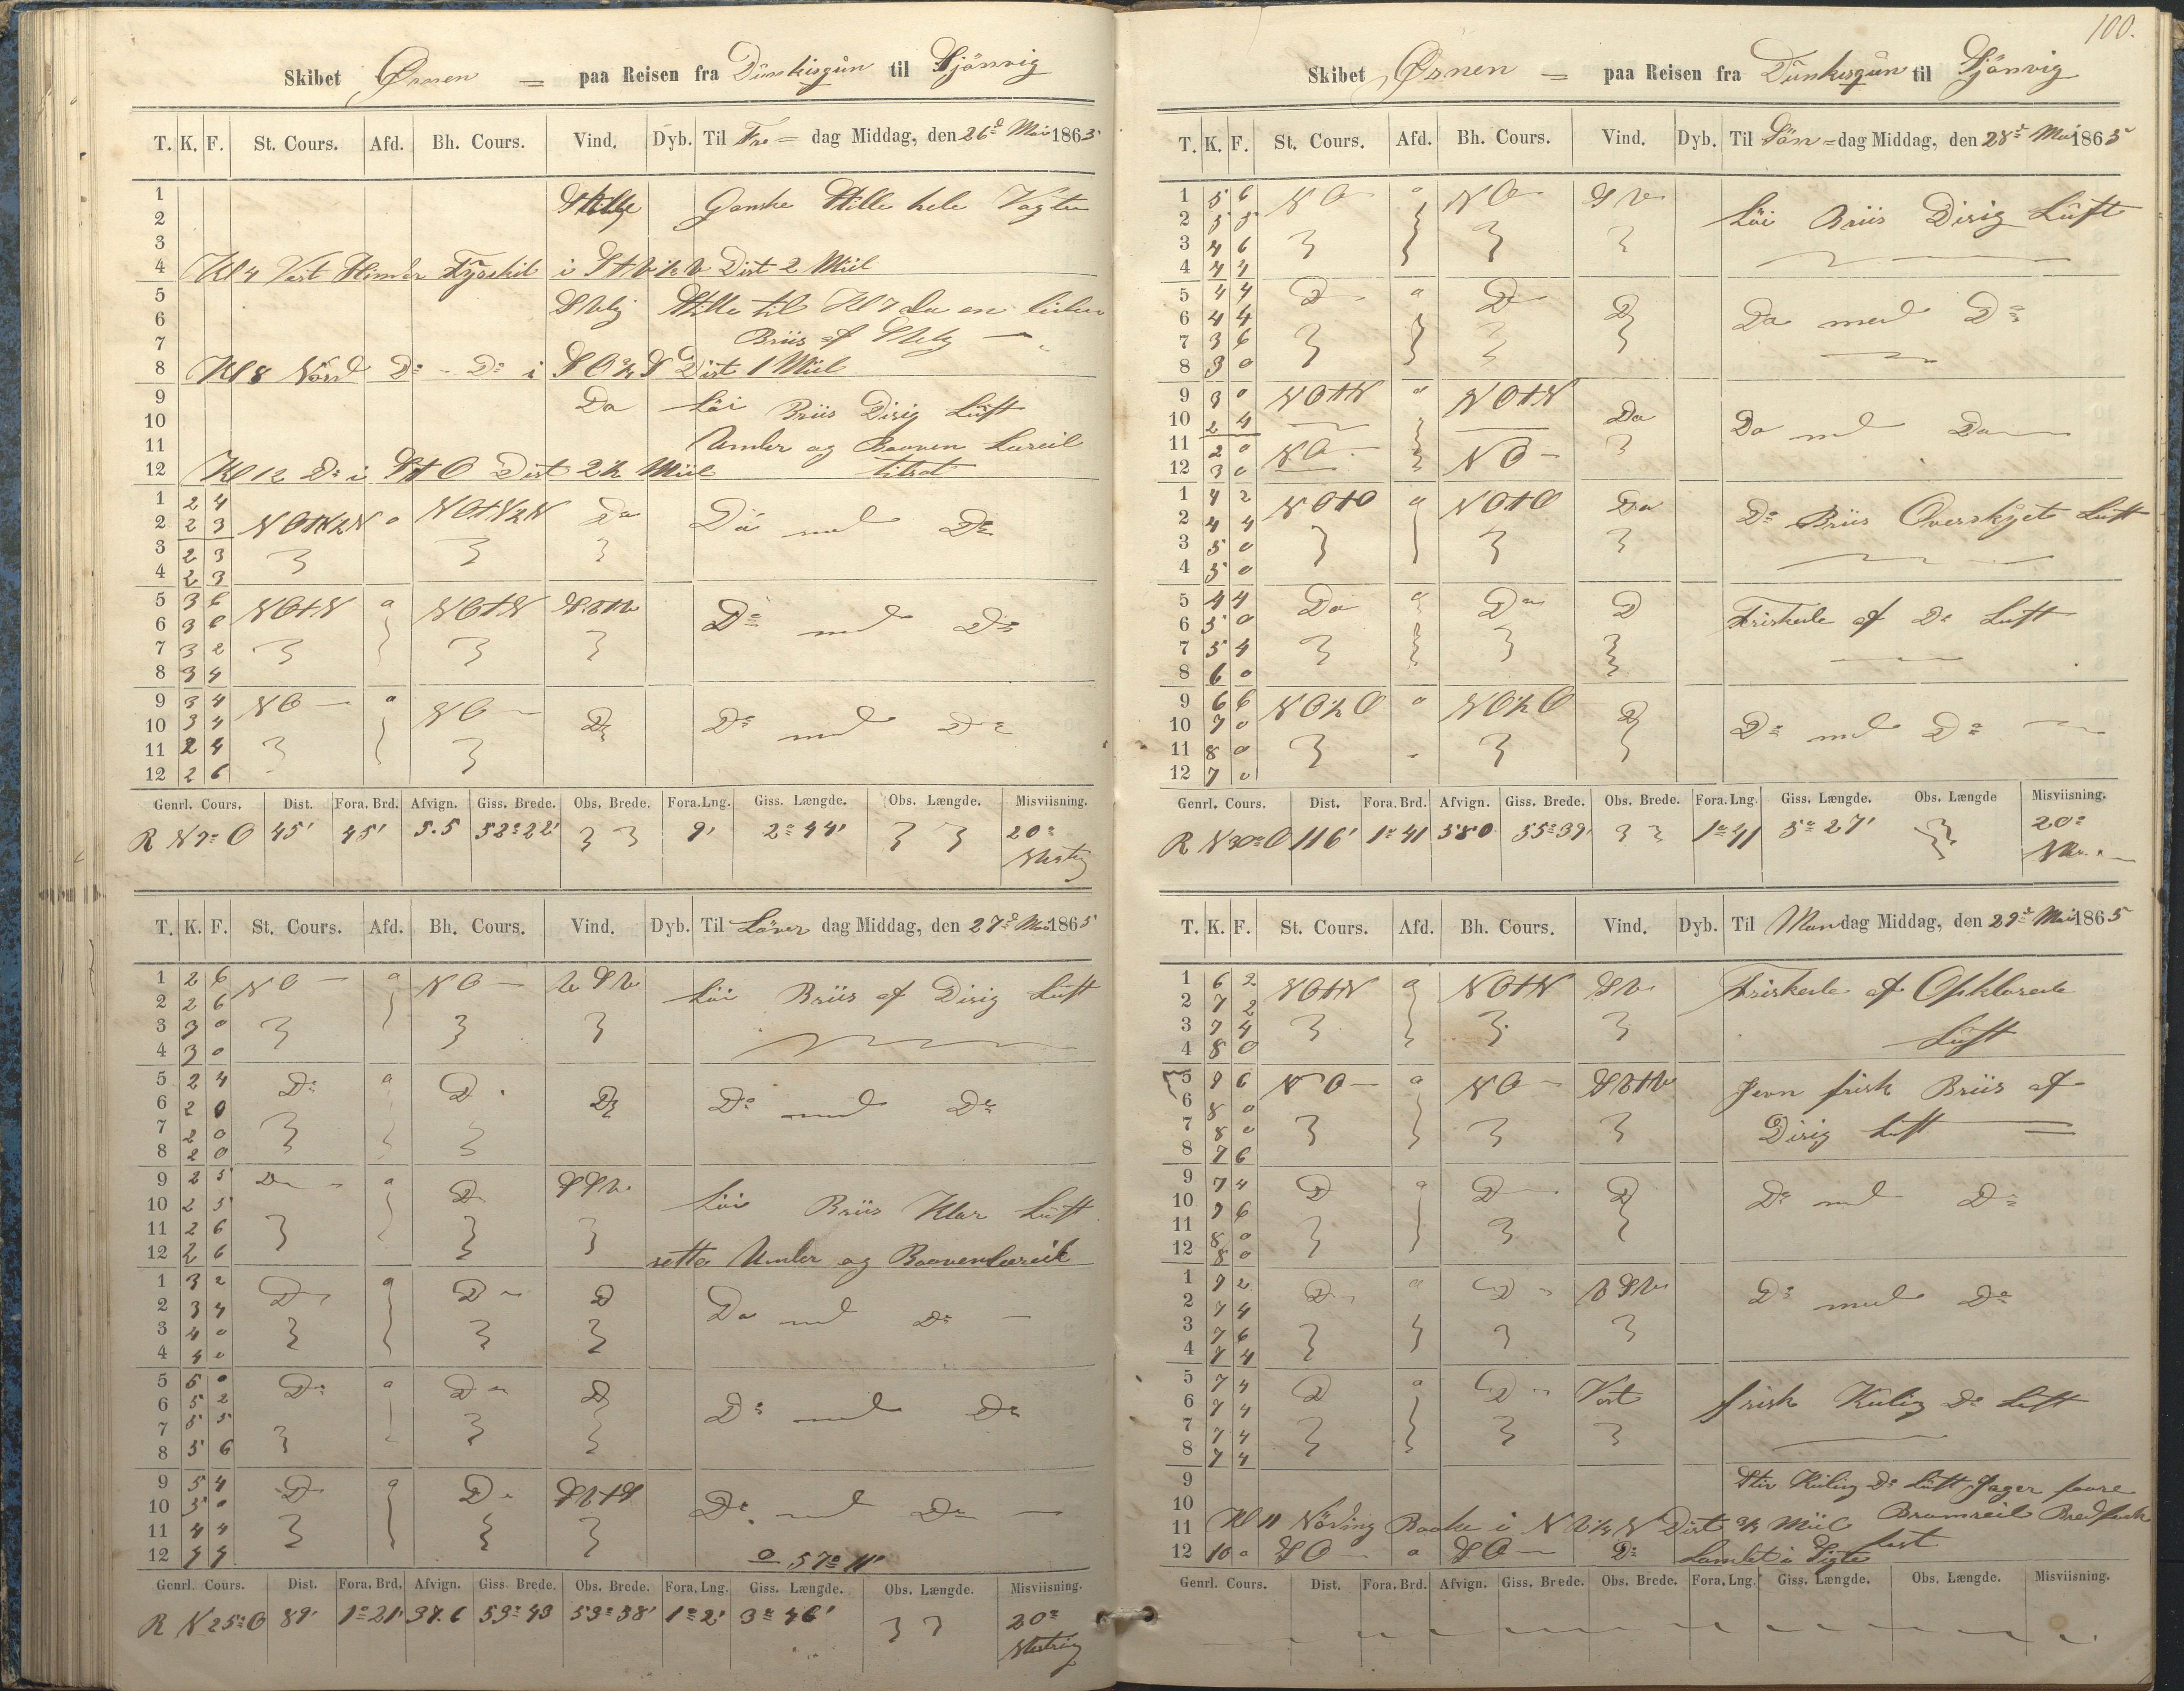 100.
Skibet Ørnen = paa Reisen fra Dünkisqün til Sjönvig
T. K. F. St. Cours. Afd. Bh. Cours. Vind. Dyb. Til Fre = dag Middag, den 26d Mai 1865
1 Stille Ganske Stille hele Vagten
2
3
4 Kl 4 Vest Hinder Fyrskib i Dist 2 Miil
5 Stille til Kl 7 da en liden
6 Briis af
7
8 Kl 8 Nord Do - Do i S O ½ S Dist 1 Miil
9 Do Löi Briis Disig Luft
10
11 Under og Booven Læseil
12 Kl 12 Do i StO Dist 2½ Miil tilsat
1 2 4 NOtN½N o NOtN½N Do Do med Do
2 2 3
3 2 3
4 2 3
5 3 6 NOtN o NOtN SVtV Do med Do
6 3 0
7 3 2
8 3 4
9 3 4 NO o NO Do Do med Do
10 3 4
11 2 4
12 2 6
Genrl. Cours. Dist. Fora. Brd. Afvign. Giss. Brede. Obs. Brede. Fora. Lng. Giss. Længde. Obs. Længde. Misviisning.
R N 7o O 45' 45' 5.5 52o 22' 9' 2o 44' 20o Vestlig
T. K. F. St. Cours. Afd. Bh. Cours. Vind. Dyb. Til Löver dag Middag, den 27d Mai 1865
1 2 6 NO o NO V S V Löi Briis af Disig Luft
2 2 6
3 3 0
4 3 0
5 2 4 Do o Do Do Do med Do
6 2 0
7 2 0
8 2 0
9 2 5 Do o Do SSV Löi Briis Klar Luft
10 2 5
11 2 6
12 2 6 satte Under og Boovenlæseil
1 3 2 Do o Do Do Do med Do
2 3 4
3 4 0
4 4 0
5 5 0 Do o Do Do Do med Do
6 5 2
7 5 5
8 5 6
9 5 4 Do o Do SVtS Do med Do
10 5 0
11 4 4
12 4 4 o 57o 11'
Genrl. Cours. Dist. Fora. Brd. Afvign. Giss. Brede. Obs. Brede. Fora. Lng. Giss. Længde. Obs. Længde. Misviisning.
R N 25o O 89' 1o 21' 37.6 53o 43 53o 38' 1o 2' 3o 46' 20o Vestlig
Skibet Ørnen = paa Reisen fra Dünkisqün til Sjönvig
T. K. F. St. Cours. Afd. Bh. Cours. Vind. Dyb. Til Sön = dag Middag, den 28d Mai 1865
1 5 6 NO o NO SV Löi Briis Disig Luft
2 5 5
3 4 6
4 4 4
5 4 4 Do o Do Do Do med Do
6 4 4
7 3 6
8 3 0
9 3 0 NOtN o NOtN Do Do med Do
10 2 4
11 2 0 NO NO
12 3 0
1 4 2 NOtO o NOtO Do Do Briis Overskyet Luft
2 4 4
3 5 0
4 5 0
5 4 4 Do o Do Do Friskede af Do Luft
6 5 0
7 5 4
8 6 0
9 6 6 NO½O o NO½O Do Do med Do
10 7 0
11 8 0
12 7 0
Genrl. Cours. Dist. Fora. Brd. Afvign. Giss. Brede. Obs. Brede. Fora. Lng. Giss. Længde. Obs. Længde Misviisning.
R N 30o O 116' 1o 41 58 0 55o 39' 1o 41 5o 27' 20o
T. K. F. St. Cours. Afd. Bh. Cours. Vind. Dyb. Til Mandag Middag, den 29d Mai 1865
1 6 2 NOtN o NOtN SV Friskede af Opklarede
2 7 2
3 7 4 Luft
4 8 0
5 9 6 NO o NO SVtV Jevn frisk Briis af
6 8 0
7 8 0 Disig Luft
8 7 6
9 7 4 Do o Do Do Do med Do
10 7 6
11 8 0
12 8 0
1 7 2 Do o Do V S V Do med Do
2 7 4
3 7 6
4 7 4
5 7 4 Do o Do Vest frisk Kuling Do Luft
6 7 4
7 7 4
8 7 4
9 Stiv Kuling Do Luft
10 Bramseil
11 Kl 11 Baake i N V ½ N Dist ¾ Miil
12 10 0 SO o SO Do Landet i Sigte fast
Genrl. Cours. Dist. Fora. Brd. Afvign. Giss. Brede. Obs. Brede. Fora. Lng. Giss. Længde. Obs. Længde. Misviisning.